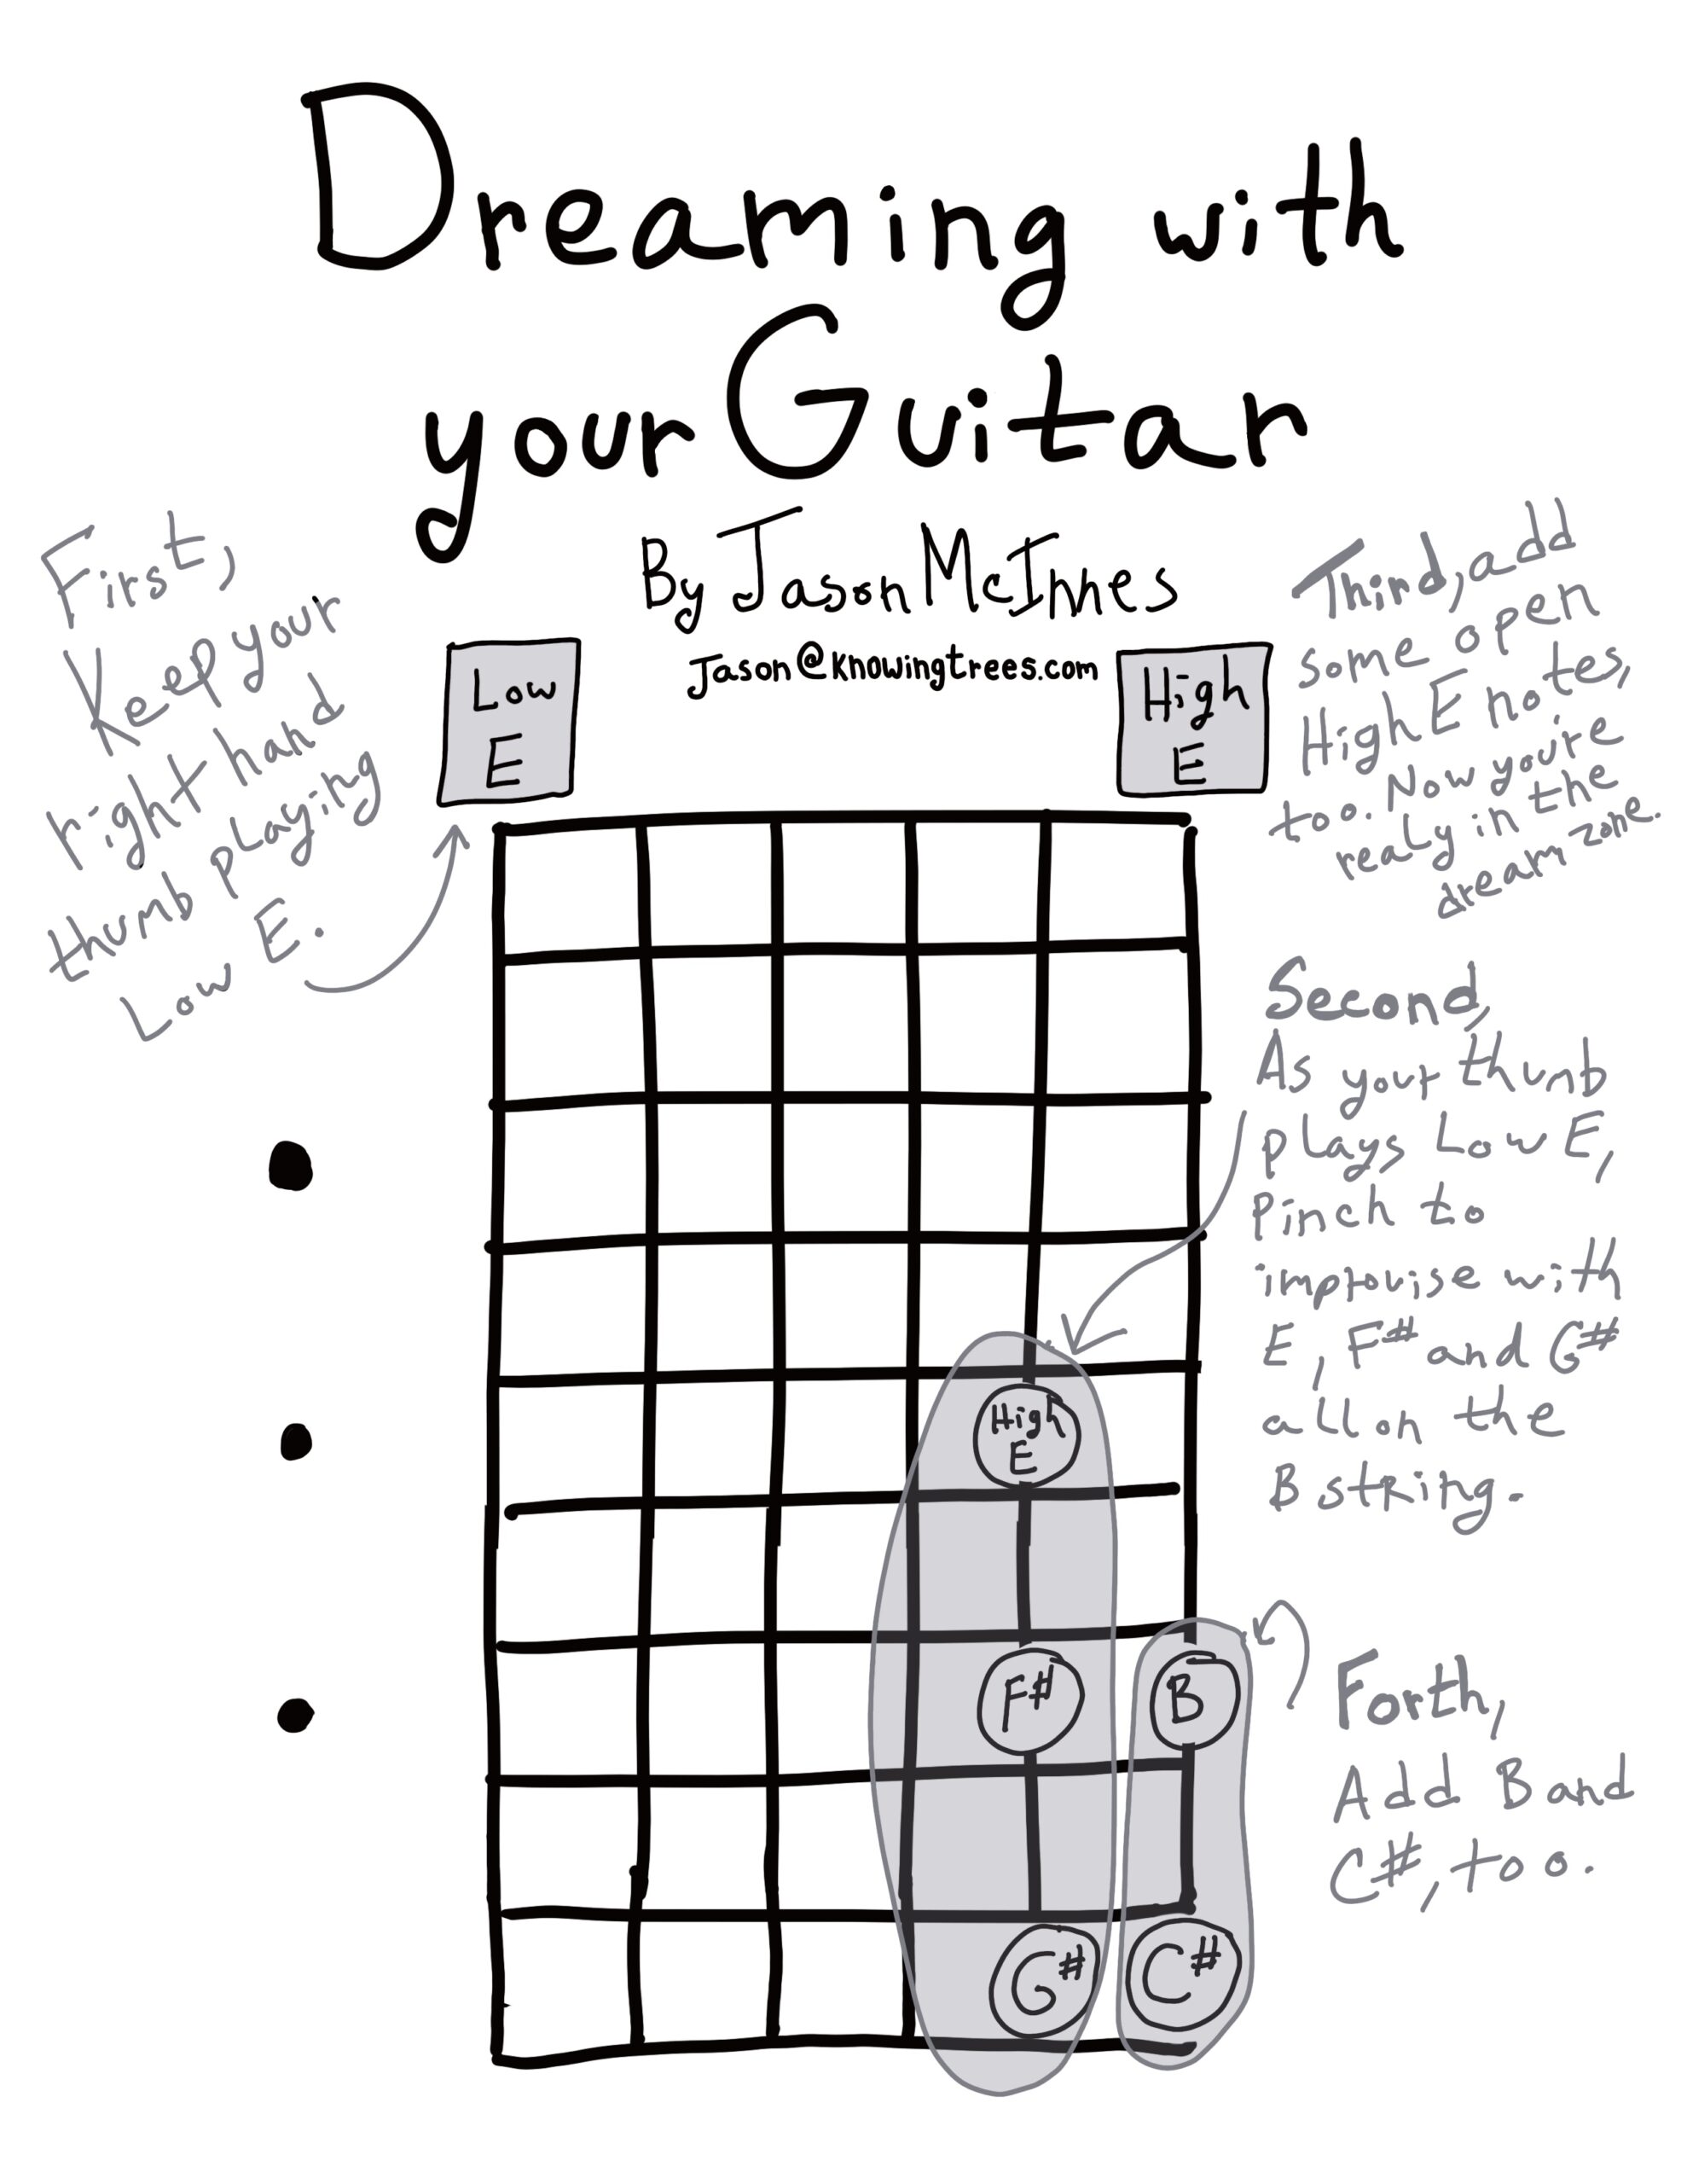 Dreaming with
your Guitar
By Jason McInnes
Jason@knowingtrees.com
First,
Keep your
right hand
thumb playing
Low E.
Low
E
High
E
Third, add
some open
High E notes,
too. Now you're
realy in the
dream zone.
Second,
As your thumb
plays Low E,
Pinch to
improvise with
E, F# and G#
all on the
B string.
High
E
F#
B
Forth,
Add B and
C#, too.
G#
C#